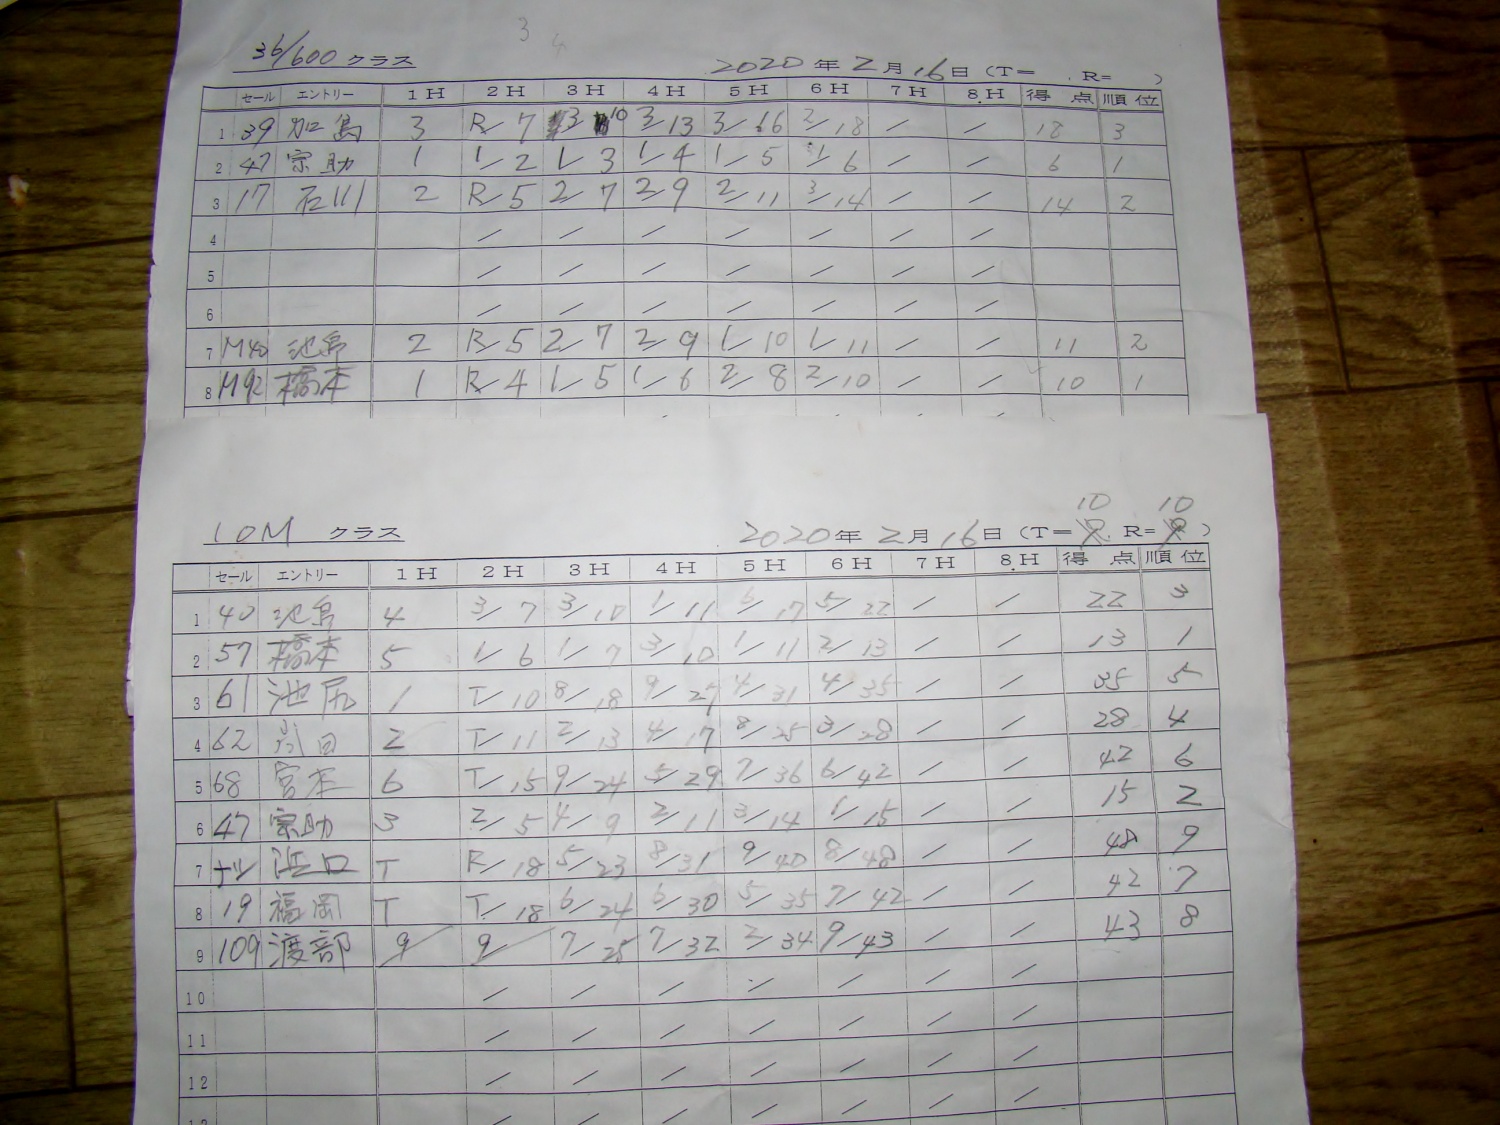 3
4
36/600 クラス 2020年 2月 16日 (T= . R= )
セール エントリー 1H 2H 3H 4H 5H 6H 7H 8H 得点 順位
1 39 加島 3 R/7 3 10 3/13 3/16 2/18 / / 18 3
2 47 宗助 1 1/2 1/3 1/4 1/5 1/6 / / 6 1
3 17 石川 2 R/5 2/7 2/9 2/11 3/14 / / 14 2
4 / / / / / / /
5 / / / / / / /
6 / / / / / / /
7 M40 池島 2 R/5 2/7 2/9 1/10 1/11 / / 11 2
8 M92 橋本 1 R/4 1/5 1/6 2/8 2/10 / / 10 1
10 10
10M クラス 2020年 2月 16日 (T=9. R=9)
セール エントリー 1H 2H 3H 4H 5H 6H 7H 8H 得点 順位
1 40 池島 4 3/7 3/10 1/11 6/17 5/22 / / 22 3
2 57 橋本 5 1/6 1/7 3/10 1/11 2/13 / / 13 1
3 61 池尻 1 T/10 8/18 9/27 4/31 4/35 / / 35 5
4 62 2 T/11 2/13 4/17 8/25 3/28 / / 28 4
5 68 宮本 6 T/15 9/24 5/29 7/36 6/42 / / 42 6
6 47 宗助 3 2/5 4/9 2/11 3/14 1/15 / / 15 2
7 ナシ 浜口 T R/18 5/23 8/31 9/40 8/48 / / 48 9
8 19 福岡 T T/18 6/24 6/30 5/35 7/42 / / 42 7
9 109 渡部 9/ 9/ 7/25 7/32 2/34 9/43 / / 43 8
10 / / / / / / /
11 / / / / / / /
12 / / / / / / /